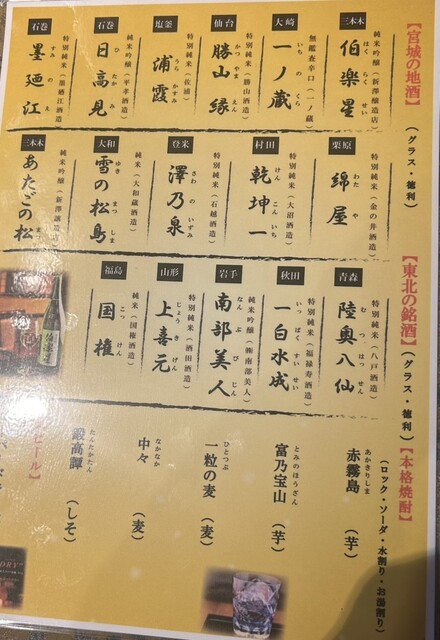 【宮城の地酒】(グラス・徳利)
三本木
純米吟醸(新澤醸造店)
伯楽星
はくらくせい
大崎
無鑑査辛口(一ノ蔵)
一ノ蔵
いちのくら
仙台
特別純米(勝山酒造)
勝山 縁
かつやま えん
塩釜
特別純米(佐浦)
浦霞
うらかすみ
石巻
純米吟醸(平孝酒造)
日高見
ひたかみ
石巻
特別純米(墨廼江酒造)
墨廼江
すみのえ
栗原
特別純米(金の井酒造)
綿屋
わたや
村田
特別純米(大沼酒造)
乾坤一
けんこんいち
登米
特別純米(石越酒造)
澤乃泉
さわのいずみ
大和
純米吟醸(大和蔵酒造)
雪の松島
ゆきのまつしま
三本木
純米吟醸(新澤醸造店)
あたごの松
まつ
【東北の銘酒】(グラス・徳利)
青森
特別純米(八戸酒造)
陸奥八仙
むつはっせん
秋田
特別純米(福禄寿酒造)
一白水成
いっぱくすいせい
岩手
純米吟醸(㈱南部美人)
南部美人
なんぶびじん
山形
特別純米(酒田酒造)
上喜元
じょうきげん
福島
純米(国権酒造)
国権
こっけん
【本格焼酎】
(ロック・ソーダ・水割り・お湯割り)
赤霧島 (芋)
あかきりしま
富乃宝山 (芋)
とみのほうざん
一粒の麦 (麦)
ひとつぶ
中々 (麦)
なかなか
鍛高譚 (しそ)
たんたかたん
ビール】